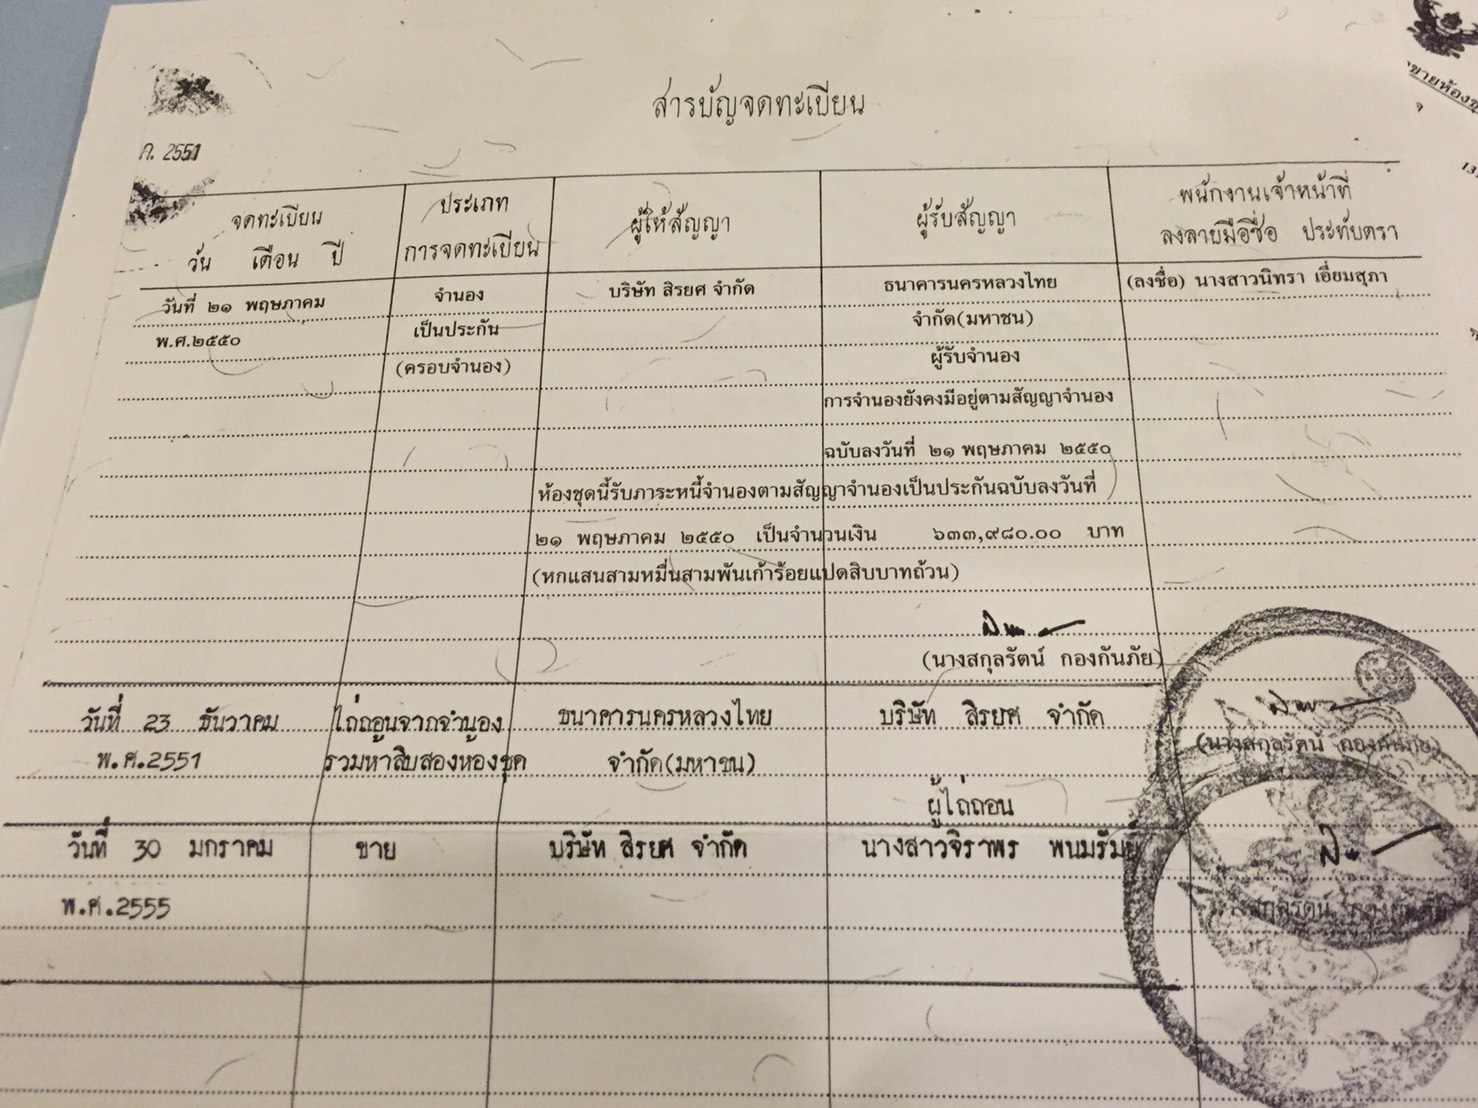 สารบัญจดทะเบียน
ค. 2551
จดทะเบียน
วัน เดือน ปี
ประเภท
การจดทะเบียน
ผู้ให้สัญญา
ผู้รับสัญญา
พนักงานเจ้าหน้าที่
ลงลายมือชื่อ ประทับตรา
วันที่ ๒๑ พฤษภาคม
พ.ศ.๒๕๕๐
จำนอง
เป็นประกัน
(ครอบจำนอง)
บริษัท สิรยศ จำกัด
ธนาคารนครหลวงไทย
จำกัด(มหาชน)
ผู้รับจำนอง
การจำนองยังคงมีอยู่ตามสัญญาจำนอง
ฉบับลงวันที่ ๒๑ พฤษภาคม ๒๕๕๐
(ลงชื่อ) นางสาวนิทรา เอี่ยมสุภา
ห้องชุดนี้รับภาระหนี้จำนองตามสัญญาจำนองเป็นประกันฉบับลงวันที่
๒๑ พฤษภาคม ๒๕๕๐ เป็นจำนวนเงิน ๖๓๓,๙๘๐.๐๐ บาท
(หกแสนสามหมื่นสามพันเก้าร้อยแปดสิบบาทถ้วน)
(นางสกุลรัตน์ กองกันภัย)
วันที่ 23 ธันวาคม
พ.ศ.2551
ไถ่ถอนจากจำนอง
รวมห้าสิบสองห้องชุด
ธนาคารนครหลวงไทย
จำกัด(มหาชน)
บริษัท สิรยศ จำกัด
ผู้ไถ่ถอน
(นางสกุลรัตน์ กองกันภัย)
วันที่ 30 มกราคม
พ.ศ.2555
ขาย
บริษัท สิรยศ จำกัด
นางสาวจิราพร พนมรัมย์